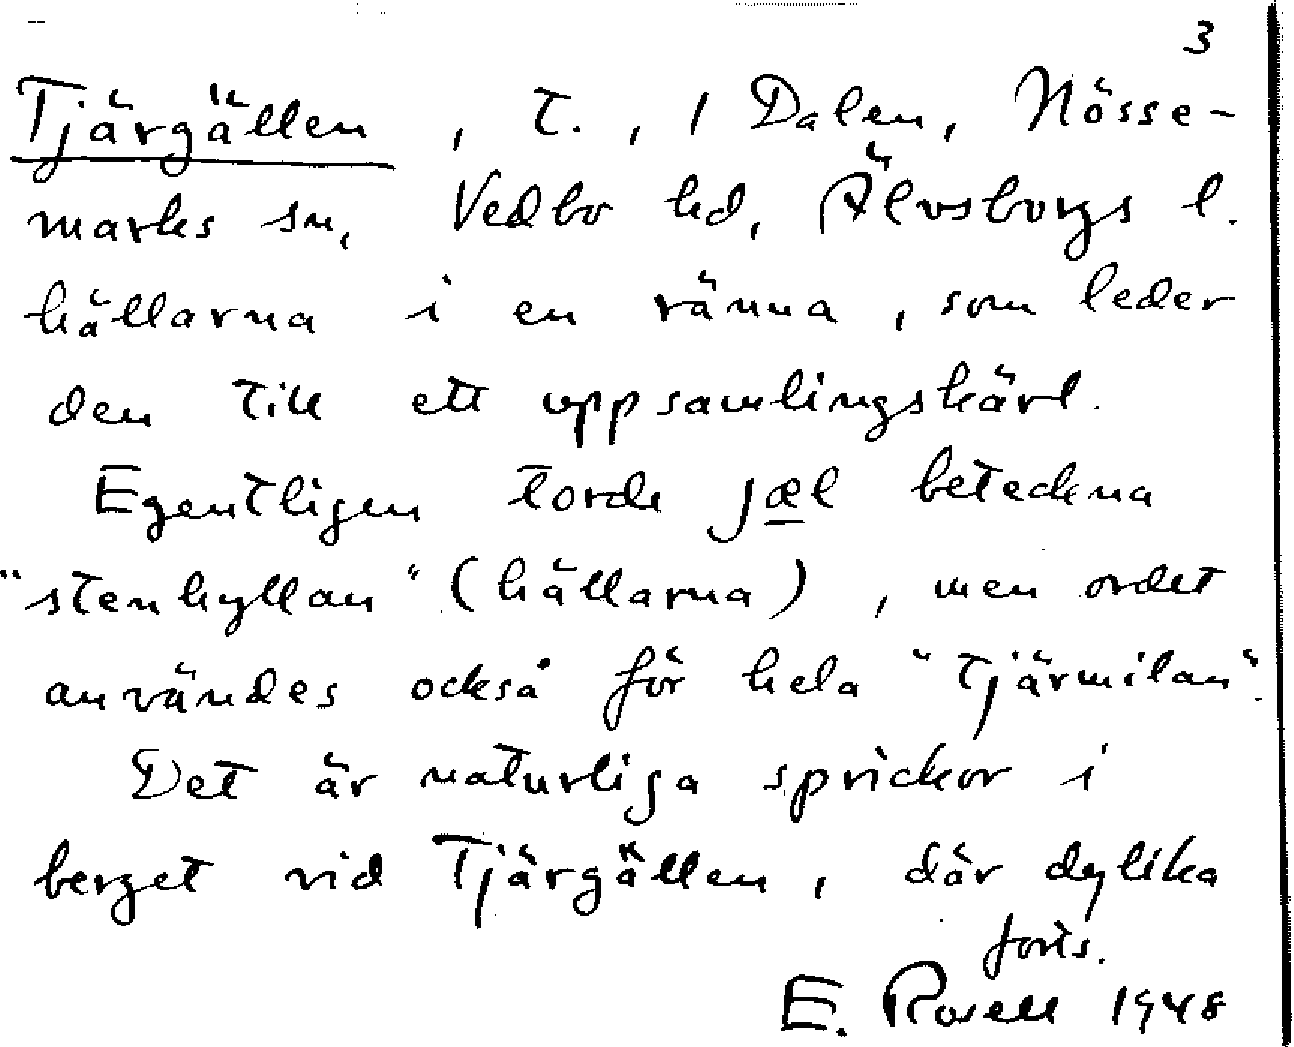 3
Tjärgällen, T., 1 Dalen, Nösse-
marks sn, Vedbo hd, Älvsborgs l.
hällarna i en ränna, som leder
den till ett uppsamlingskärl.
Egentligen torde jæl beteckna
"stenhyllan" (hällarna), men ordet
användes också för hela "tjärmilan".
Det är naturliga sprickor i
berget vid Tjärgällen, där dylika
forts.
E. Rosell 1948